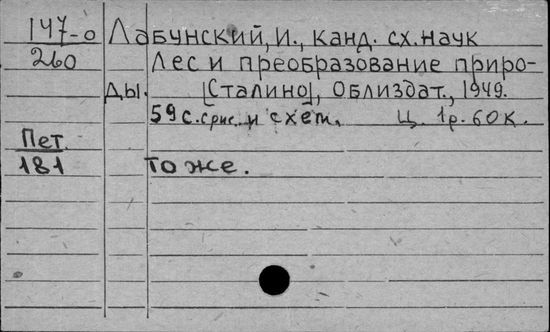 147-0 Лабунский, И., канд. сх. наук
260 Лес и преобразование приро-
ды. [Сталино], Облиздат., 1949.
59 с. с рис. и схем. Ц. 1р. 60к.
Пет
181 То же.